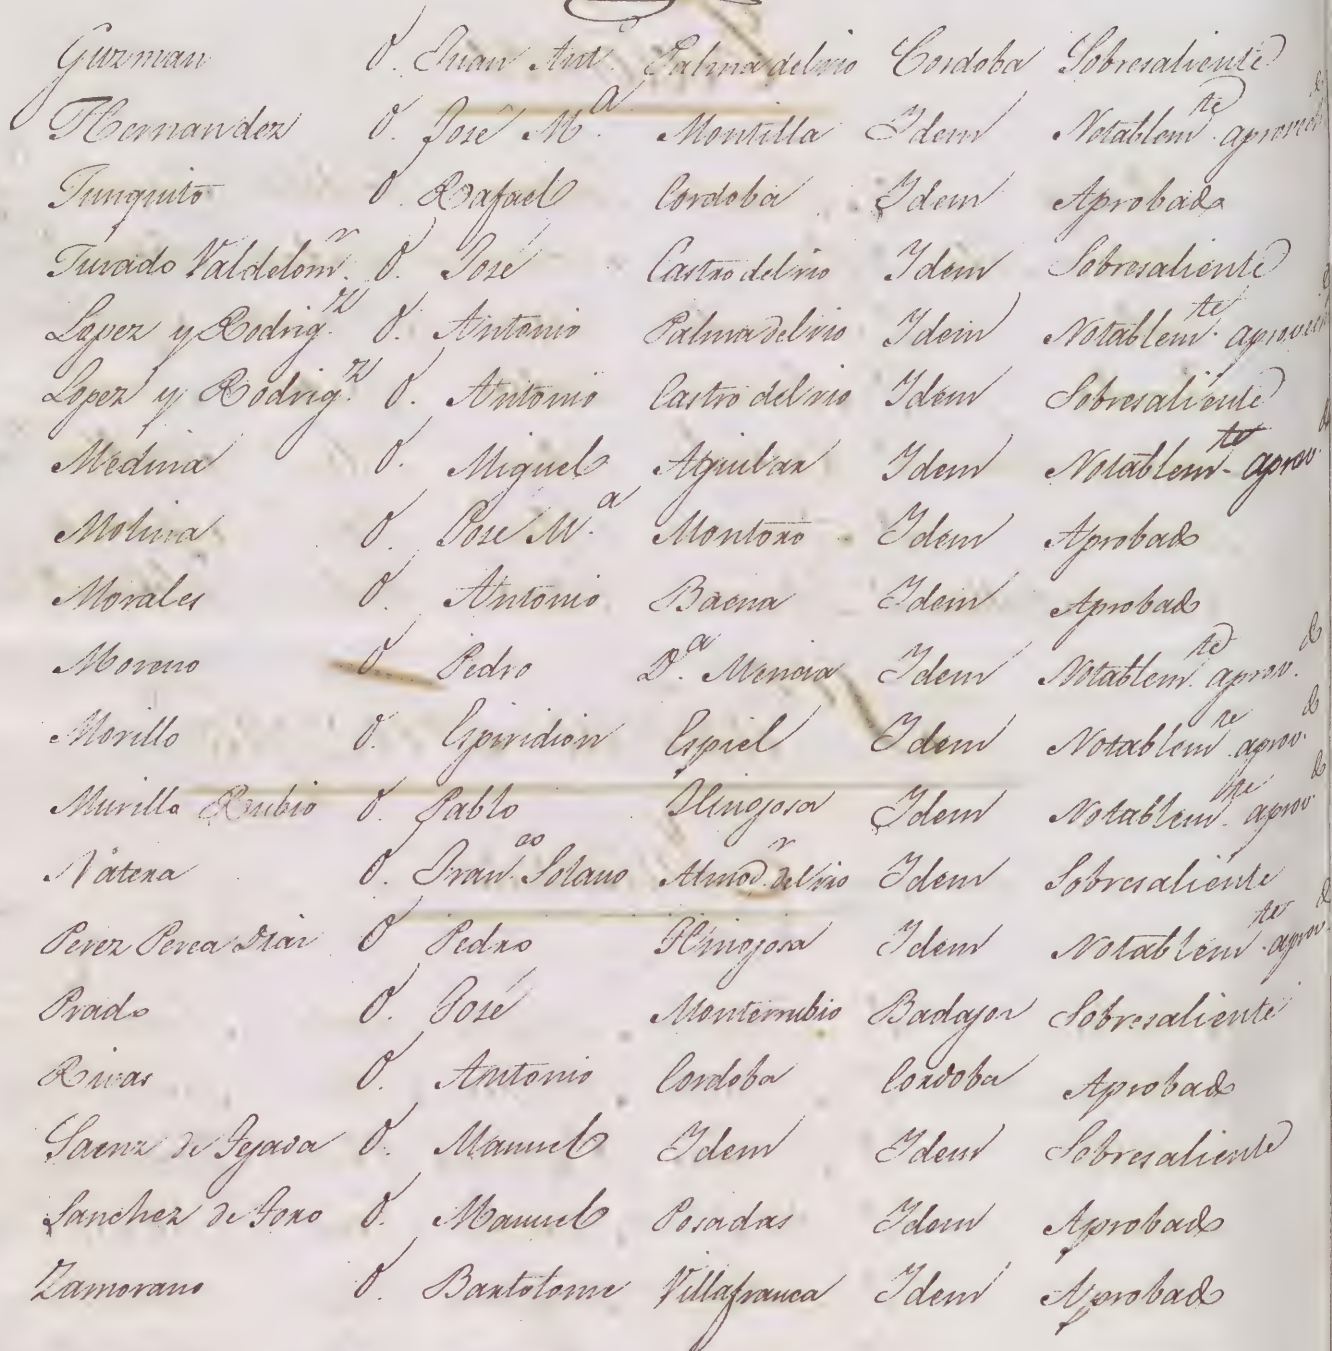 Guzman D. Juan Ant.º Palma del rio Cordoba Sobresaliente
Hernandez D. José M.ª Montilla Idem Notablem.te aprovech
Junquito D. Rafael Cordoba Idem Aprobado
Jurado Valdelom.r D. José Castro del rio Idem Sobresaliente
Lopez y Rodrig.z D. Antonio Palma del rio Idem Notablem.te aprovech
Lopez y Rodrig.z D. Antonio Castro del rio Idem Sobresaliente
Medina D. Miguel Aguilar Idem Notablem.te aprov.do
Molina D. José M.ª Montoro Idem Aprobado
Morales D. Antonio Baena Idem Aprobado
Moreno D. Pedro D.ª Mencia Idem Notablem.te aprov.do
Morillo D. Espiridion Espiel Idem Notablem.te aprov.do
Murillo Rubio D. Pablo Hinojosa Idem Notablem.te aprov.do
Nátera D. Fran.co Solano Almod.r del rio Idem Sobresaliente
Perez Perea Diaz D. Pedro Hinojosa Idem Notablem.te aprov.do
Prado D. José Monterrubio Badajoz Sobresaliente
Rivas D. Antonio Cordoba Cordoba Aprobado
Saenz de Tejada D. Manuel Idem Idem Sobresaliente
Sanchez de Toro D. Manuel Posadas Idem Aprobado
Zamorano D. Bartolome Villafranca Idem Aprobado